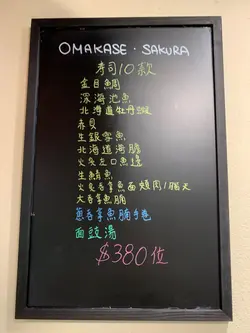 OMAKASE · SAKURA
寿司10款
金目鯛
深海池魚
北海道牡丹蝦
赤貝
生銀雪魚
北海道海膽
火炙左口魚邊
生鯖魚
火炙吞拿魚面頰肉
大吞拿魚腩
蔥吞拿魚腩手卷
面豉湯
$380位